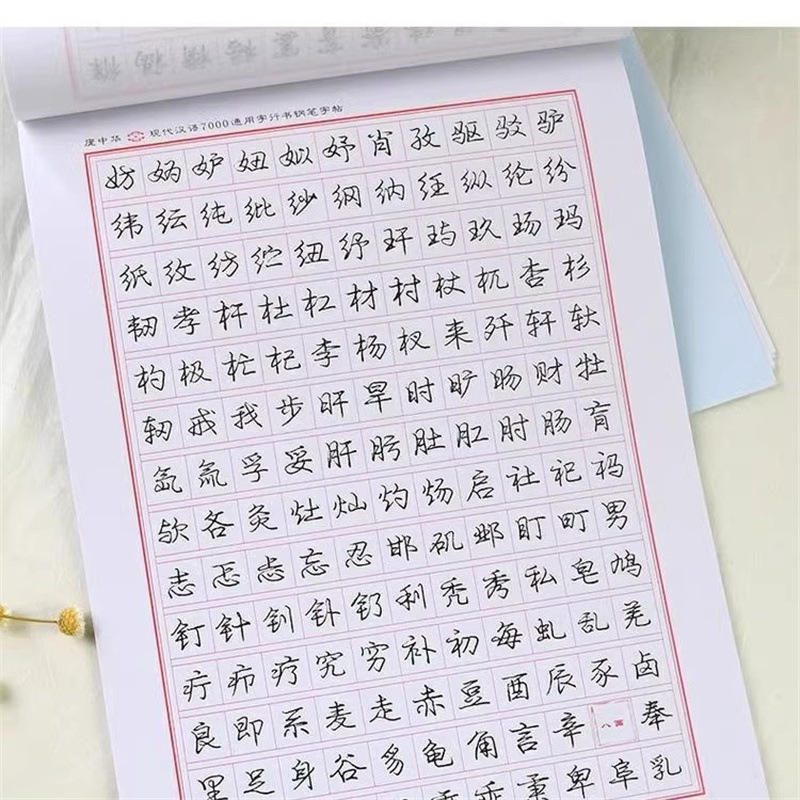 庞中华 现代汉语7000通用字行书钢笔字帖
妨 妫 妒 妞 姒 妤 肖 孜 驱 驳 驴
纬 纭 纯 纰 纱 纲 纳 纴 纵 纶 纷
纸 纹 纺 纻 纽 纾 玕 玙 玖 玚 玛
韧 孝 杆 杜 杠 材 村 杖 杌 杏 杉
杓 极 杧 杞 李 杨 杈 来 歼 轩 轪
轫 戒 我 步 旰 旱 时 旷 旸 财 牡
氙 氚 孚 妥 肝 肟 肚 肛 肘 肠 肓
欤 吝 灸 灶 灿 灼 炀 启 社 祀 祃
志 忑 忐 忘 忍 邯 矶 邺 盯 町 男
钉 针 钊 钋 钌 利 秃 秀 私 皂 鸠
疔 疖 疗 究 穷 补 初 每 虬 乱 羌
良 即 系 麦 走 赤 豆 酉 辰 豕 卤
里 足 身 谷 豸 龟 角 言 辛 八画 奉
乖 秉 卑 阜 乳